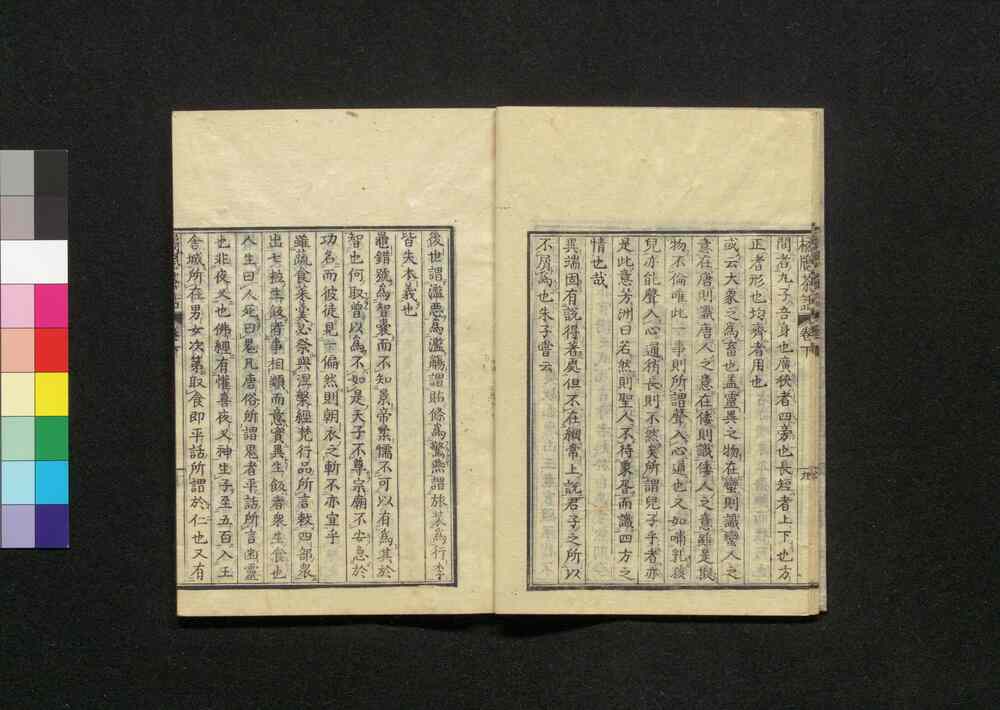 間者丸子吾身也廣狹者四旁也長短者上下也方
正者形也均齊者用也
或云大象之為畜也盖靈異之物在蠻則識蠻人之
意在唐則識唐人之意在倭則識倭人之意雖是擬
物不倫唯此一事則所謂聲入心通也又如哺乳孩
兒亦能聲入心通稍長則不然矣所謂兒子乎者亦
是此意芳洲曰若然則聖人不待象胥而識四方之
情也哉
異端固有說得著處但不在綱常上說君子之所以
不屑為也朱子嘗云
後世謂濫惡為濫觴謂貼條為驚燕謂旅裝為行李
皆失本義也
鼂錯號為智囊而不知景帝柔懦不可以有為其於
智也何取曾以為不如是天子不尊宗廟不安急於
功名而彼徒見一偏然則朝衣之斬不亦宜乎
雖蔬食菜羹必祭與涅槃經梵行品所言敕四部衆
出七粒生飯者事相類而意實異生飯者衆生食也
人生曰人死曰鬼凡唐俗所謂鬼者平話所言幽靈
也非夜叉也佛經有懽喜夜叉神生子至五百入王
舍城所在男女次第取食即平話所謂於仁也又有